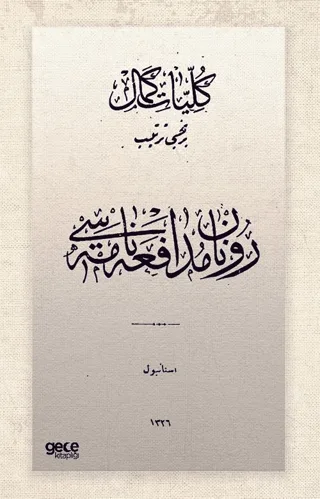 كلّيّات كمال
برنجی ترتیب
رونان مدافعه نامه سی
استانبول
١٣٢٦
gece
kitaplığı